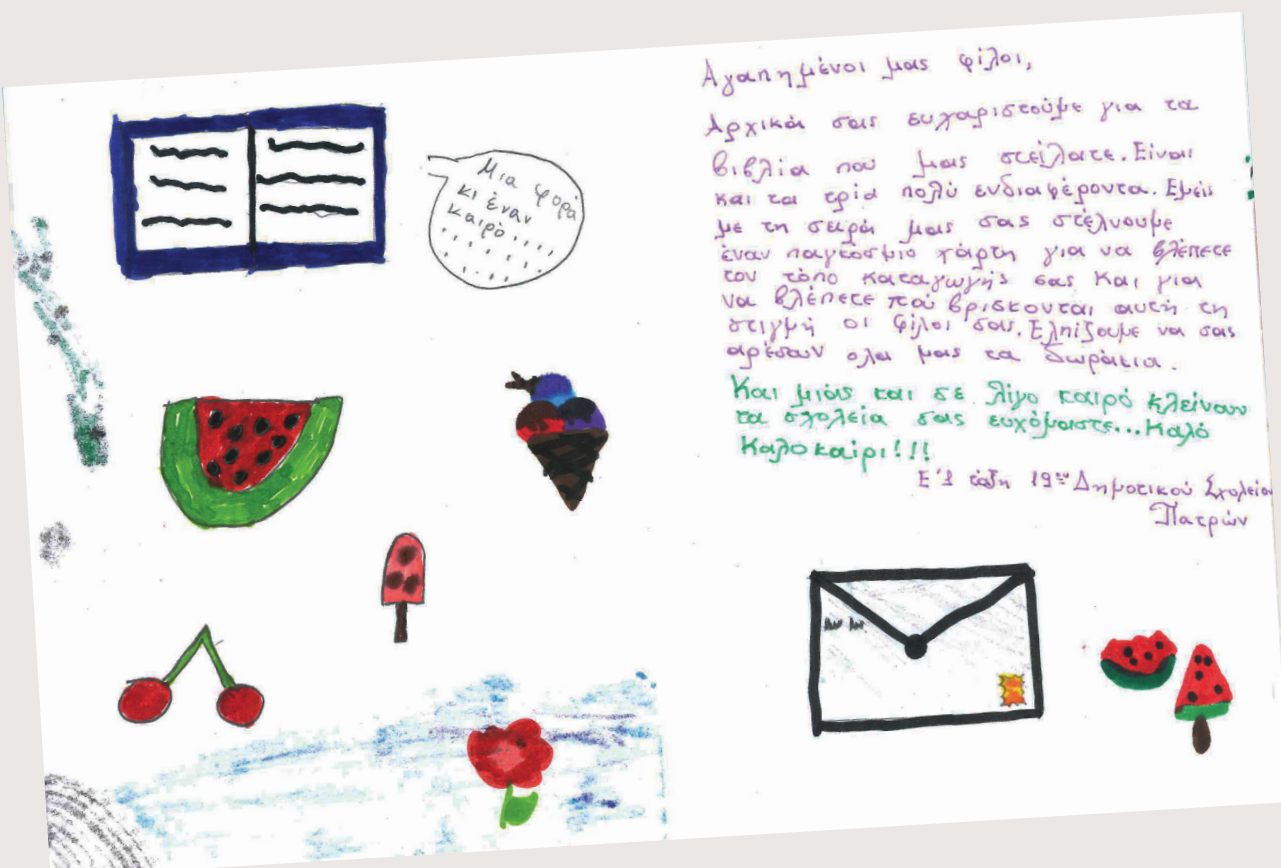 Μια φορά
κι έναν
καιρό.....
Αγαπημένοι μας φίλοι,
Αρχικά σας ευχαριστούμε για τα
βιβλία που μας στείλατε. Είναι
και τα τρία πολύ ενδιαφέροντα. Εμείς
με τη σειρά μας σας στέλνουμε
έναν παγκόσμιο χάρτη για να βλέπετε
τον τόπο καταγωγής σας και για
να βλέπετε πού βρίσκονται αυτή τη
στιγμή οι φίλοι σας. Ελπίζουμε να σας
αρέσουν ολα μας τα δωράκια.
Και μιας και σε λίγο καιρό κλείνουν
τα σχολεία σας ευχόμαστε... Καλό
Καλοκαίρι!!!
Ε'1 τάξη 19ου Δημοτικού Σχολείου
Πατρών